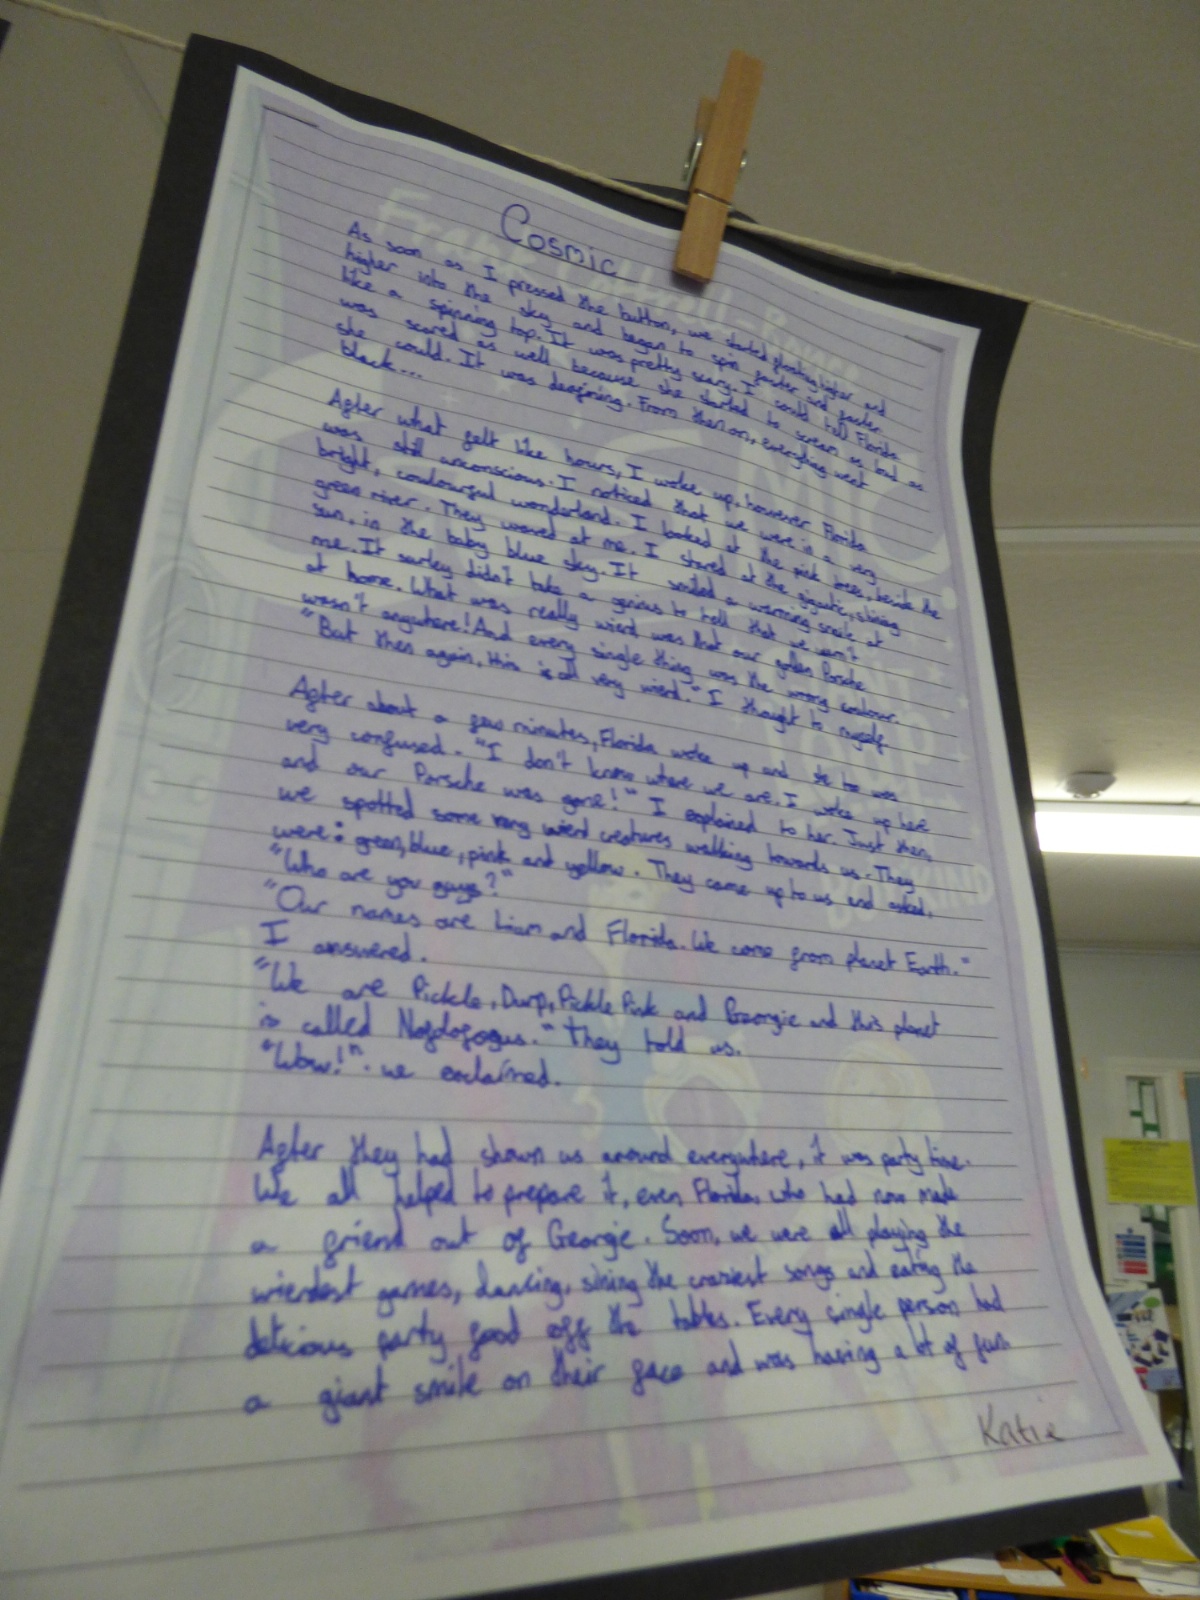 Cosmic
As soon as I pressed the button, we started floating higher and
higher into the sky and began to spin faster and faster
like a spinning top. It was pretty scary. I could tell Florida
was scared as well because she started to scream as loud as
she could. It was deafining. From then on, everything went
black...
After what felt like hours, I woke up, however Florida
was still unconscious. I noticed that we were in a very
bright, coulourful wonderland. I looked at the pink trees, beside the
green river. They waved at me. I stared at the gigantic, shining
sun, in the baby blue sky. It smiled a warming smile at
me. It surley didn't take a genius to tell that we wern't
at home. What was really wierd was that our golden Porsche
wasn't anywhere! And every single thing was the wrong coulour.
"But then again, this is all very wierd." I thought to myself
After about a few minutes, Florida woke up and she too was
very confused. "I don't know where we are. I woke up here
and our Porsche was gone!" I explained to her. Just then,
we spotted some very wierd creatures walking towards us. They
were: green, blue, pink and yellow. They came up to us and asked,
"Who are you guys?"
"Our names are Liam and Florida. We come from planet Earth."
I answered.
"We are Pickle, Durp, Pickle Pink and Georgie and this planet
is called Nofdofogus." They told us.
"Wow!". we exclaimed.
After they had shown us around everywhere, it was party time.
We all helped to prepare it, even Florida, who had now made
a friend out of Georgie. Soon, we were all playing the
wierdest games, dancing, sining the craziest songs and eating the
delicious party food off the tables. Every single person had
a giant smile on their face and was having a lot of fun
Katie